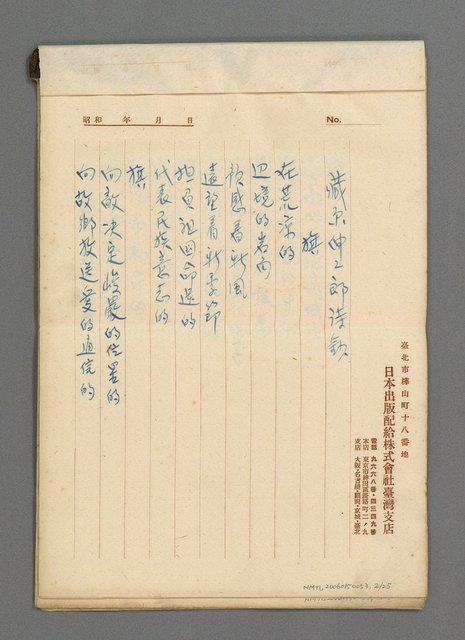 昭和　年　月　日
No.
藏原伸二郎詩鈔
旗
在荒涼的
辺境的岩角
預感着新風
遠望着新季節
担負祖国命运的
代表民族意志的
旗
向敌決定峻嚴的位置的
向故鄉放送愛的通信的
臺北市樺山町十八番地
日本出版配給株式會社臺灣支店
電話　九六六八番・四三四九番
本店　東京市神田區淡路町二ノ九
支店　大阪・名古屋・福岡・京城・臺北
NMTL20060150053, 2/25